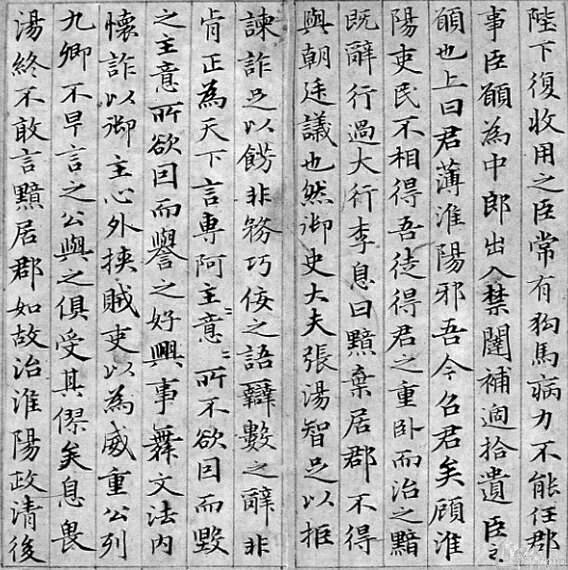 陛下復收用之臣常有狗馬病力不能任郡
事臣願為中郎出入禁闥補過拾遺臣之
願也上曰君薄淮陽邪吾今召君矣顧淮
陽吏民不相得吾徒得君之重臥而治之黯
既辭行過大行李息曰黯棄居郡不得
與朝廷議也然御史大夫張湯智足以拒
諫詐足以餝非務巧佞之語辯數之辭非
肯正為天下言專阿主〻意〻所不欲因而毀
之主意所欲因而譽之好興事舞文法內
懷詐以御主心外挾賊吏以為威重公列
九卿不早言之公與之俱受其僇矣息畏
湯終不敢言黯居郡如故治淮陽政清後